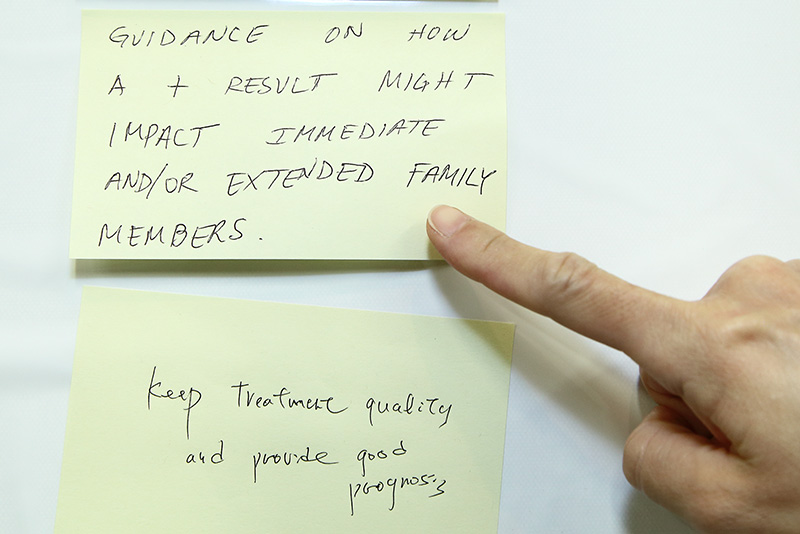 GUIDANCE ON HOW
A + RESULT MIGHT
IMPACT IMMEDIATE
AND/OR EXTENDED FAMILY
MEMBERS.
keep treatment quality
and provide good
prognosis